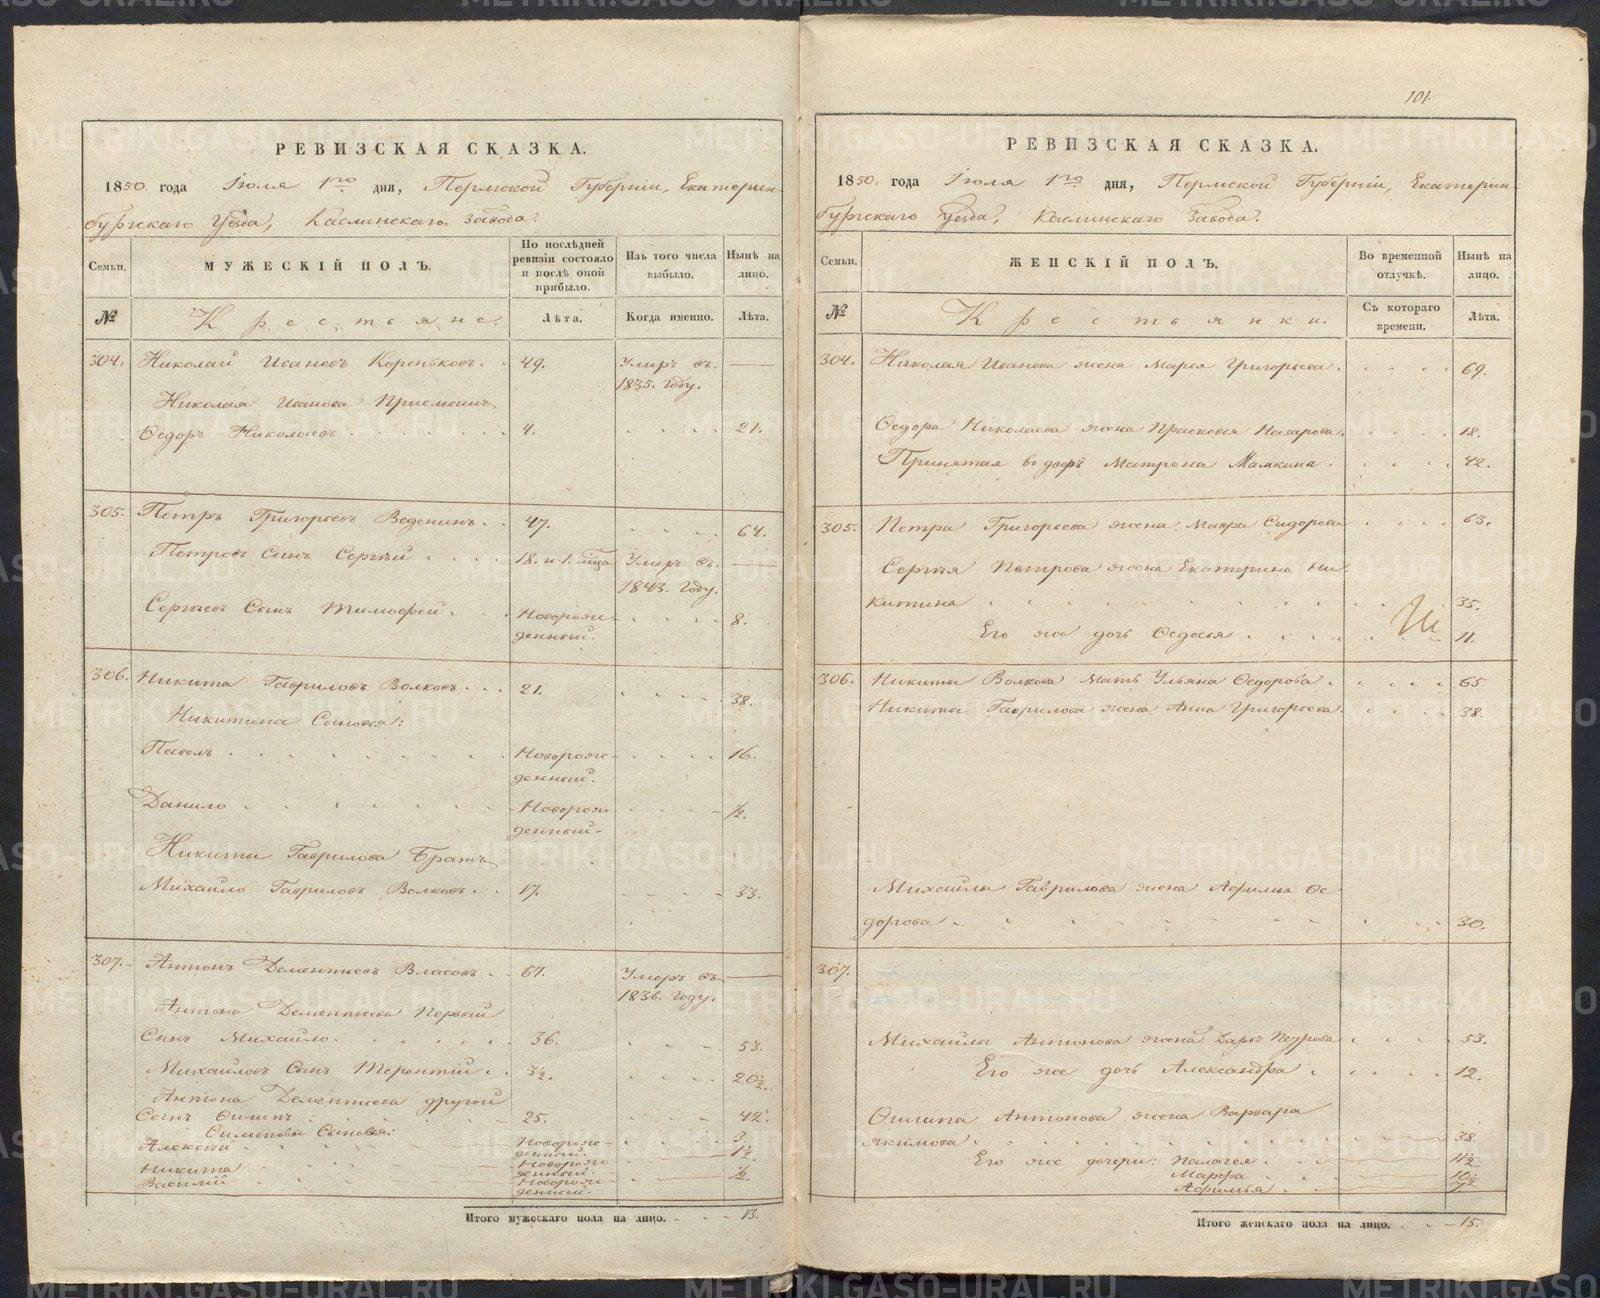 РЕВИЗСКАЯ СКАЗКА.
1850. года Іюля 1го дня, Пермской Губерніи, Екатерин-
бургскаго Уезда, Каслинскаго завода.
Семьи.
МУЖЕСКІЙ ПОЛЪ.
По послѣдней ревизіи состояло и послѣ оной прибыло.
Изъ того числа выбыло.
Нынѣ на лицо.
№ Крестьяне. Лѣта. Когда именно. Лѣта.
304. Николай Ивановъ Кореньковъ. 49. Умеръ въ. —
1835. году.
Николая Иванова Приемышъ
Федоръ Николаевъ 4. 21.
305. Петръ Григорьевъ Веденинъ. 47. 64.
Петровъ Сынъ Сергѣй 18. и 1. м͠ца Умеръ въ. —
1843. году.
Сергѣевъ Сынъ Тимофей. Новорож- 8.
денный.
306. Никита Гавриловъ Волковъ. 21. 38.
Никитина Сыновья:
Павелъ Новорож- 16.
денный.
Данило Новорож ½.
денный.
Никиты Гаврилова Братъ
Михайло Гавриловъ Волковъ. 17. 33.
307. Антонъ Дементиевъ Власовъ. 67. Умеръ въ —
1836. году.
Антона Дементиева Первый
Сынъ Михайло. 36. 53.
Михайловъ Сынъ Терентий. 3½. 20½.
Антона Дементиева другой
Сынъ Филипъ 25. 42.
Филиповы Сыновья:
Алексѣй Новорож- 3.
денный.
Никита Новорож 1½.
денный.
Василій Новорож- ½.
денный.
Итого мужескаго пола на лицо. 13.
101.
РЕВИЗСКАЯ СКАЗКА.
1850. года Іюля 1го дня, Пермской Губерніи, Екатерин-
бургскаго Уезда, Каслинскаго Завода.
Семьи.
ЖЕНСКІЙ ПОЛЪ.
Во временной отлучкѣ.
Нынѣ на лицо.
№ Крестьянки. Съ котораго времени. Лѣта.
304. Николая Иванова жена Марья Григорьева. 69.
Федора Николаева жена Прасковья Назарова. 18.
Принятая во дворъ Матрена Мамкина. 42.
305. Петра Григорьева жена Мавра Сидорова 63.
Сергѣя Петрова жена Екатерина Ни-
китина 35.
Его же дочь Федосья 11.
306. Никиты Волкова Мать Ульяна Федорова. 65.
Никиты Гаврилова жена Анна Григорьева 38.
Михайлы Гаврилова жена Афимия Фе-
дорова 30.
307.
Михайлы Антонова жена Дарья Петрова 53.
Его же дочь Александра. 12.
Филипа Антонова жена Варвара
Якимова. 38.
Его же дочери: Палагея. 11½
Марфа 10½
Афимья 7.
Итого женскаго пола на лицо. 15.
METRIKI.GASO-URAL.RU